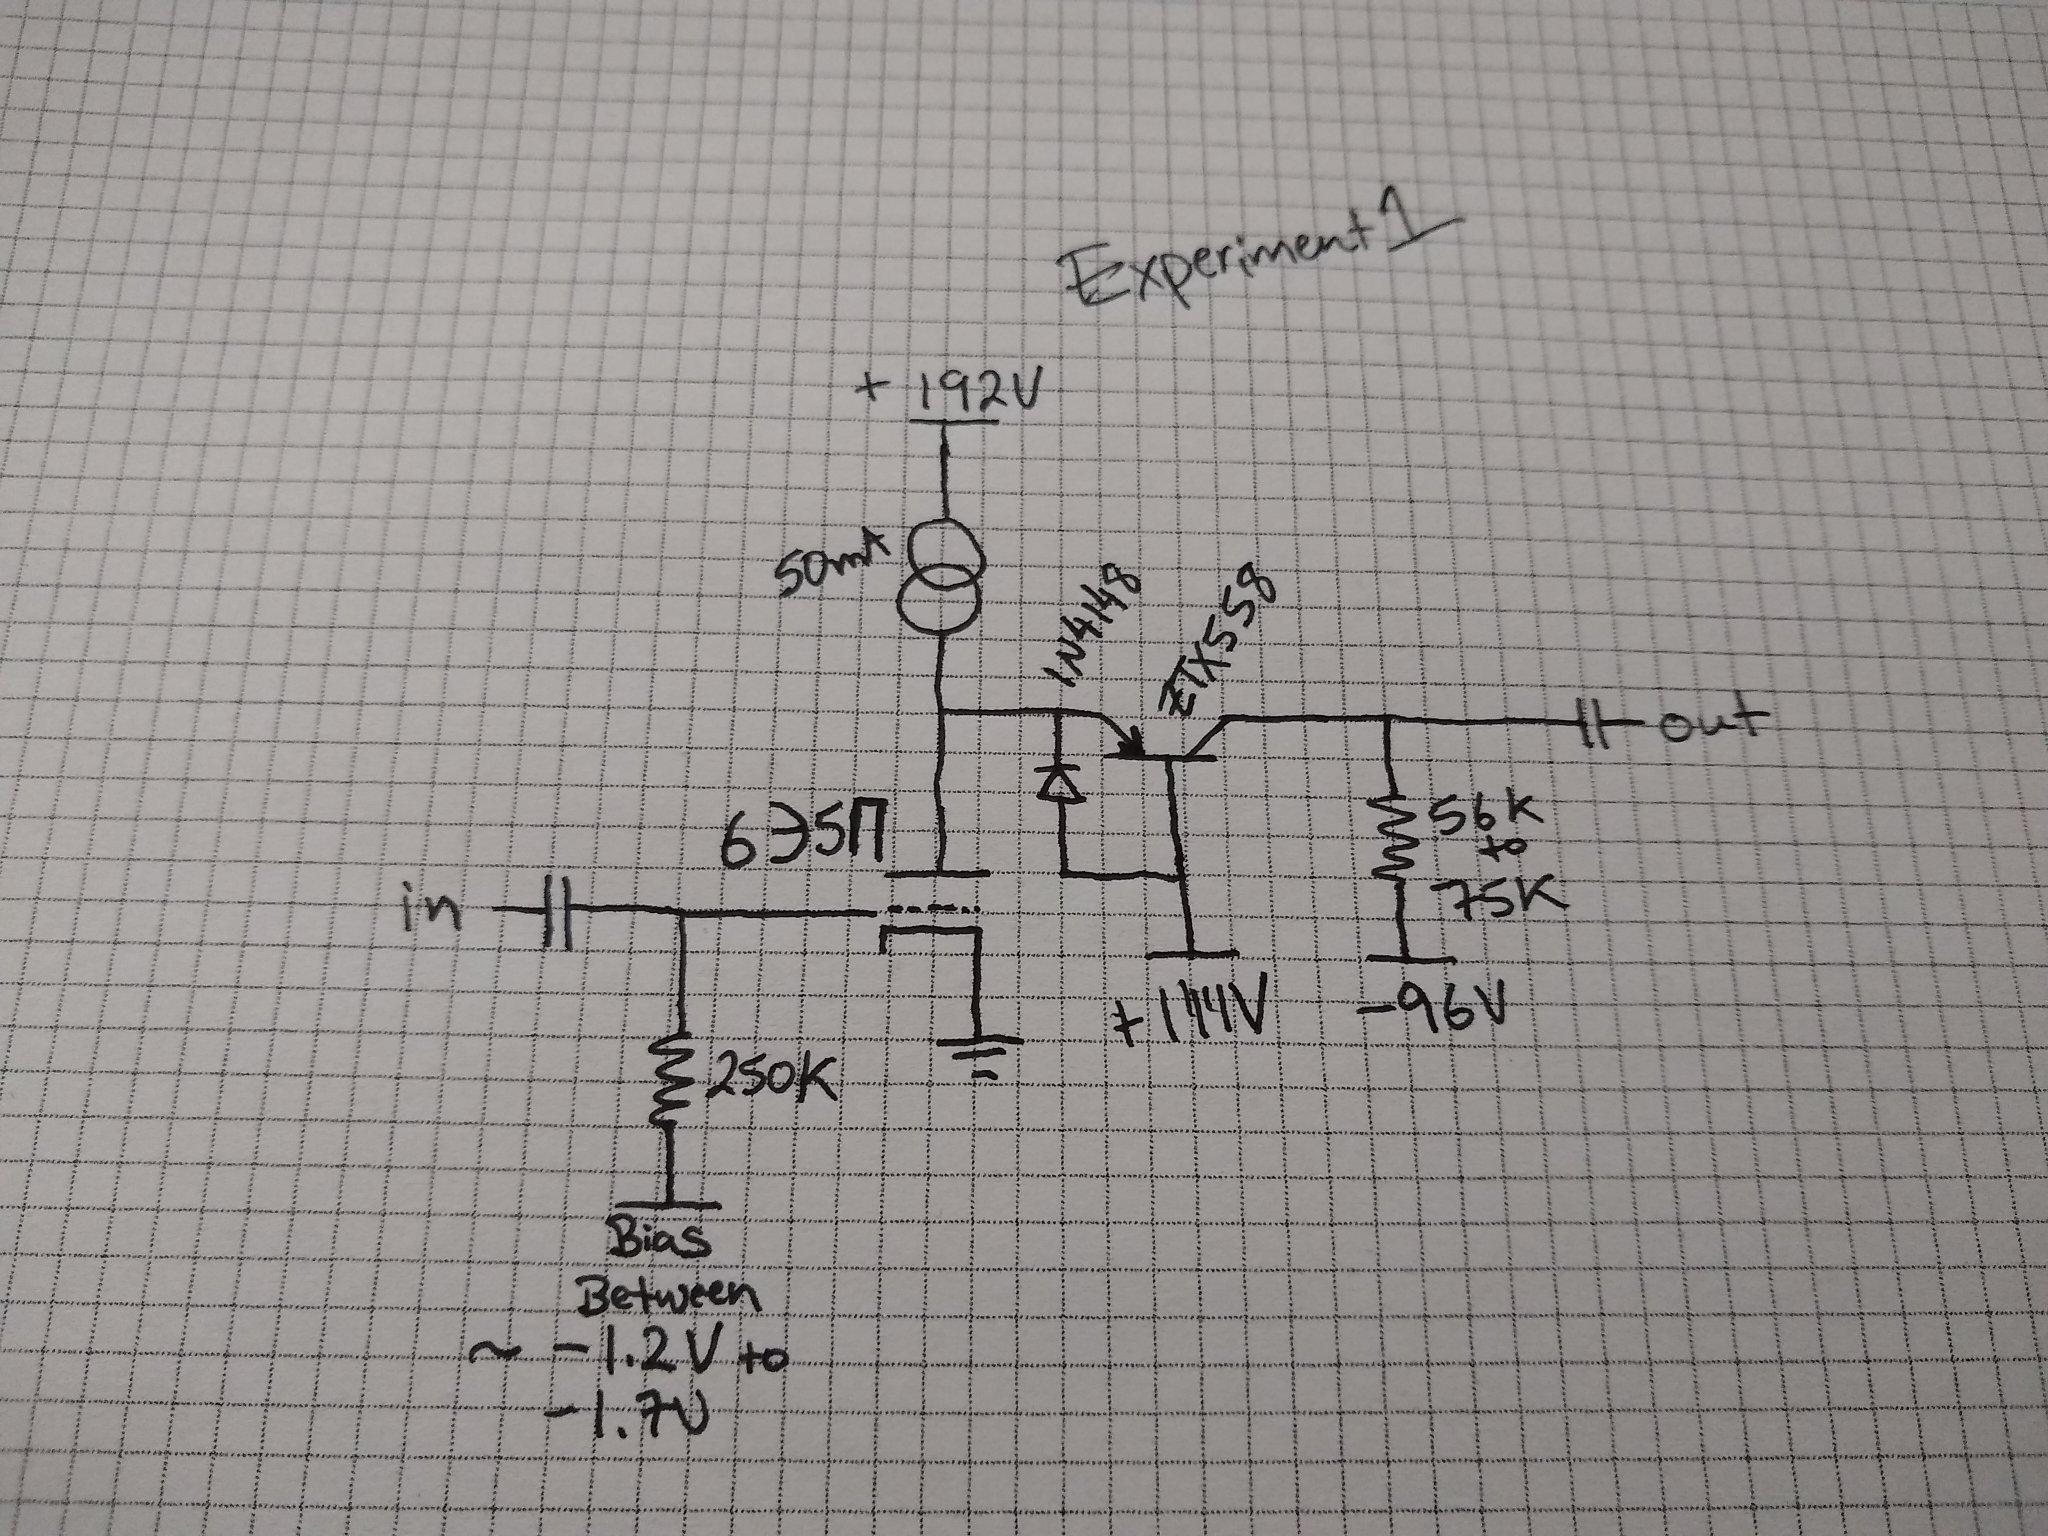 Experiment 1
+ 192V
50mA
1N4148
ZTX558
out
6Э5П
56K
to
75K
in
+114V
-96V
250K
Bias
Between
~ -1.2V to
-1.7V